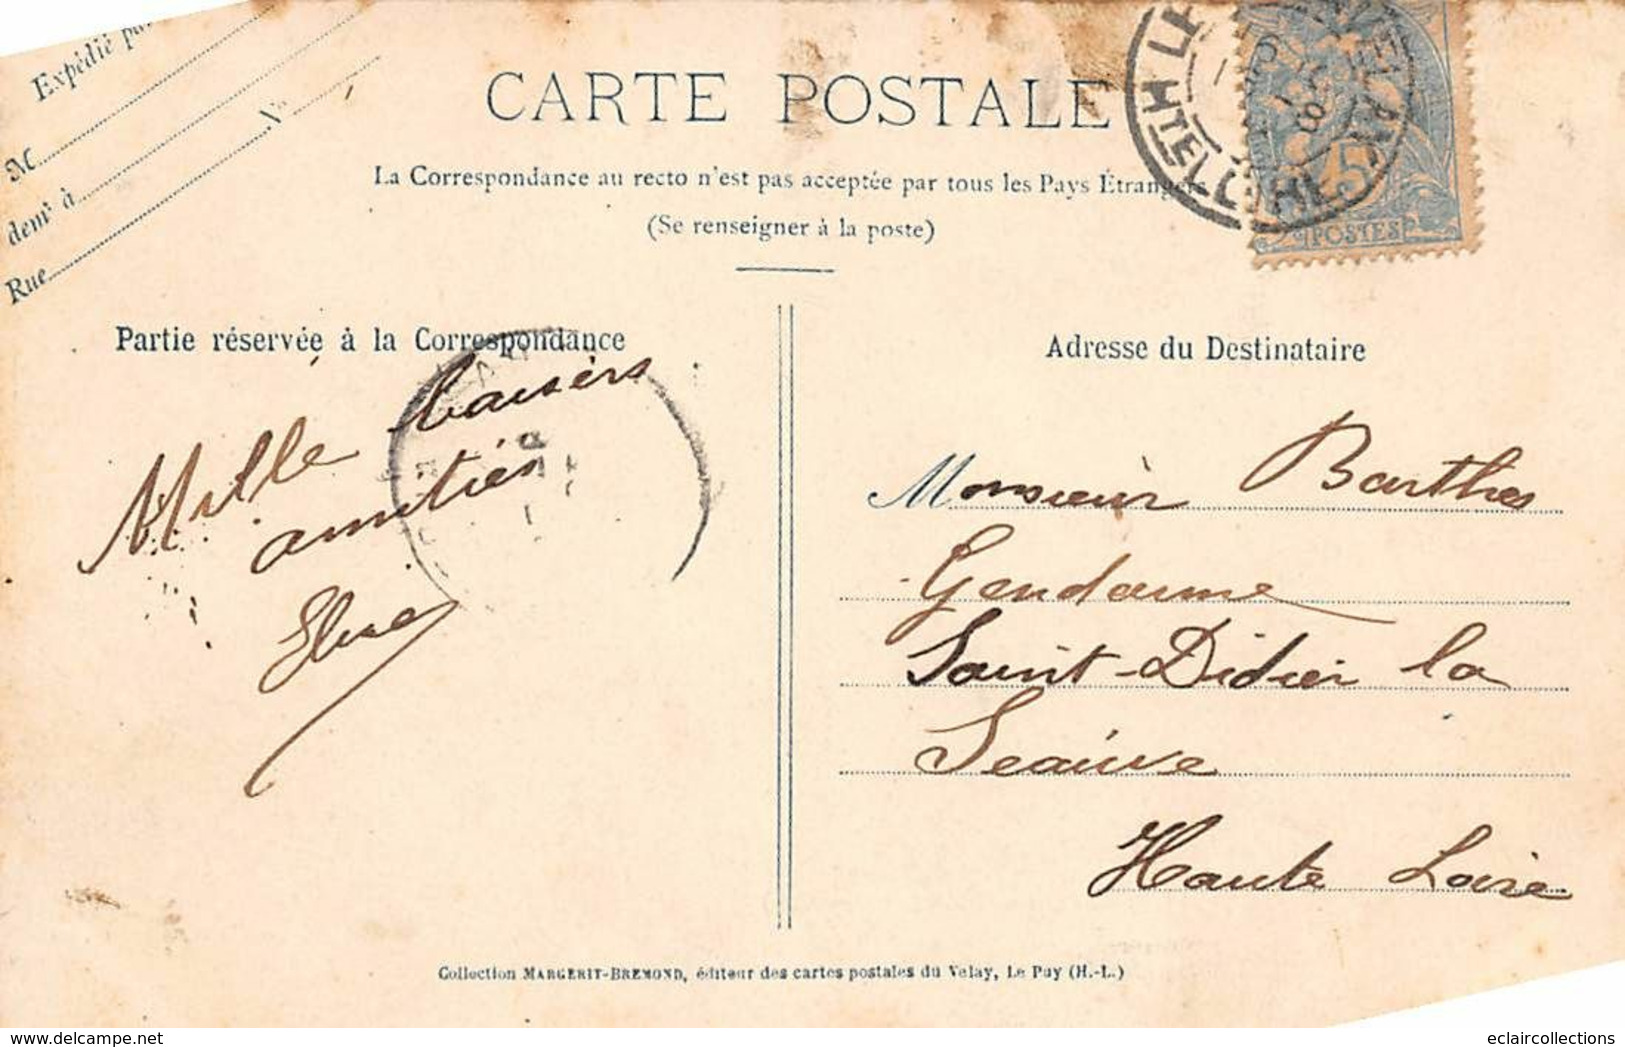 Expédié par
M
N°
dem^t à
Rue
CARTE POSTALE
La Correspondance au recto n'est pas acceptée par tous les Pays Étrangers
(Se renseigner à la poste)
Partie réservée à la Correspondance
Mille baisers
amitiés
Adresse du Destinataire
Monsieur Barthes
Gendarme
Saint-Didier la
Seauve
Haute Loire
5
POSTES
Collection MARGERIT-BREMOND, éditeur des cartes postales du Velay, Le Puy (H.-L.)
www.delcampe.net
eclaircollections